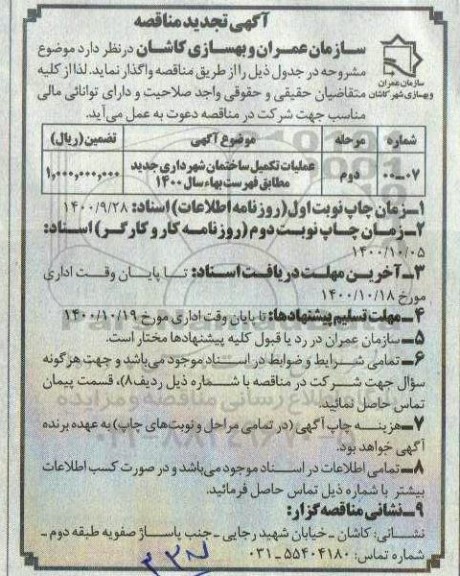 آگهی تجدید مناقصه
سازمان عمران و بهسازی کاشان درنظر دارد موضوع
مشروحه در جدول ذیل را از طریق مناقصه واگذار نماید. لذا از کلیه
متقاضیان حقیقی و حقوقی واجد صلاحیت و دارای توانائی مالی
مناسب جهت شرکت در مناقصه دعوت به عمل می‌آید.
سازمان عمران
و بهسازی شهر کاشان
شماره مرحله موضوع آگهی تضمین (ریال)
۰۰-۰۷ دوم عملیات تکمیل ساختمان شهرداری جدید ۱,۰۰۰,۰۰۰,۰۰۰
مطابق فهرست بهاء سال ۱۴۰۰
۱ـ زمان چاپ نوبت اول (روزنامه اطلاعات) اسناد: ۱۴۰۰/۹/۲۸
۲ـ زمان چاپ نوبت دوم (روزنامه کار و کارگر) اسناد:
۱۴۰۰/۱۰/۰۵
۳ـ آخرین مهلت دریافت اسناد: تا پایان وقت اداری
مورخ ۱۴۰۰/۱۰/۱۸
۴ـ مهلت تسلیم پیشنهادها: تا پایان وقت اداری مورخ ۱۴۰۰/۱۰/۱۹
۵ـ سازمان عمران در رد یا قبول کلیه پیشنهادها مختار است.
۶ـ تمامی شرایط و ضوابط در اسناد موجود می‌باشد و جهت هرگونه
سؤال جهت شرکت در مناقصه با شماره ذیل ردیف ۸)، قسمت پیمان
تماس حاصل نمائید.
۷ـ هزینه چاپ آگهی (در تمامی مراحل و نوبت‌های چاپ) به عهده برنده
آگهی خواهد بود.
۸ـ تمامی اطلاعات در اسناد موجود می‌باشد و در صورت کسب اطلاعات
بیشتر با شماره ذیل تماس حاصل فرمائید.
۹ـ نشانی مناقصه گزار:
نشانی: کاشان ـ خیابان شهید رجایی ـ جنب پاساژ صفویه طبقه دوم ـ
شماره تماس: ۵۵۴۰۴۱۸۰ ـ ۰۳۱